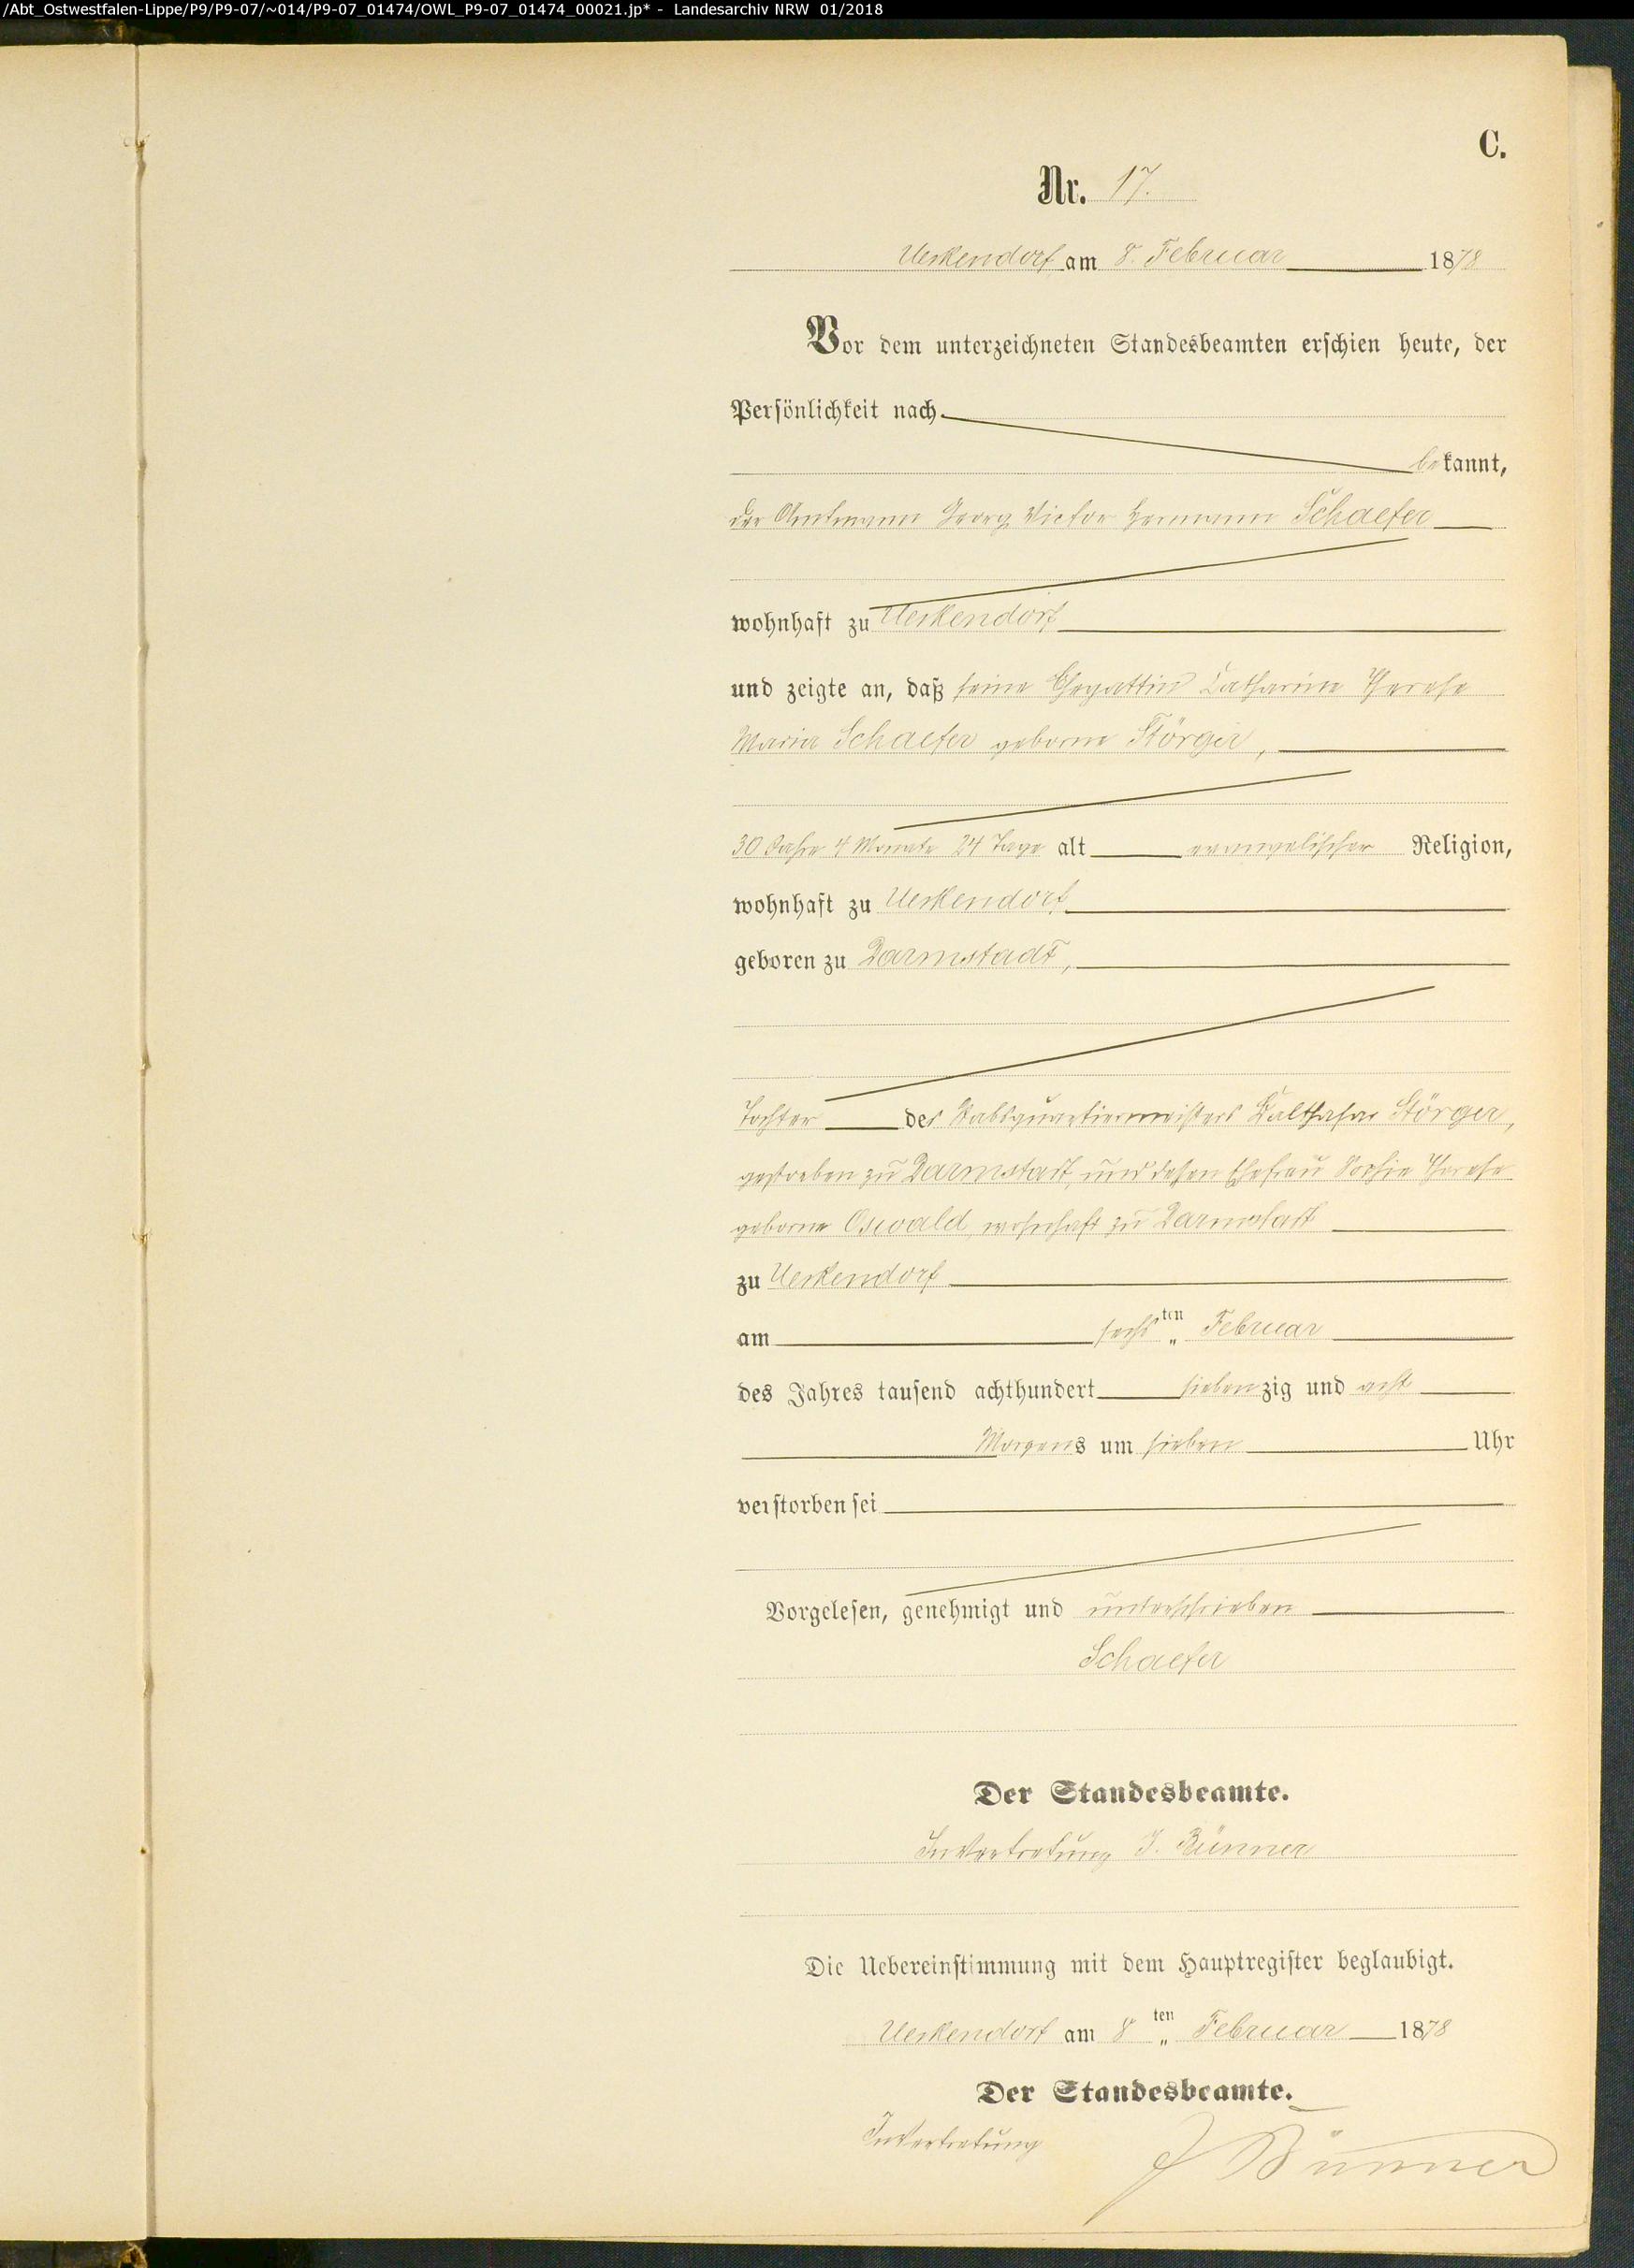 /Abt_Ostwestfalen-Lippe/P9/P9-07/~014/P9-07_01474/OWL_P9-07_01474_00021.jp* - Landesarchiv NRW 01/2018
C.
Nr. 17.
Ueckendorf am 8. Februar 1878
Vor dem unterzeichneten Standesbeamten erschien heute, der
Persönlichkeit nach
bekannt,
der Amtmann Georg Victor Hermann Schaefer
wohnhaft zu Ueckendorf
und zeigte an, daß seine Ehegattin Catharine Therese
Maria Schaefer geborne Störger,
30 Jahre 4 Monate 24 Tage alt evangelischer Religion,
wohnhaft zu Ueckendorf
geboren zu Darmstadt,
Tochter des Stabsquartiermeisters Balthasar Störger,
gestorben zu Darmstadt, und dessen Ehefrau Sophie Therese
geborne Oswald, wohnhaft zu Darmstadt
zu Ueckendorf
am sechsten Februar
des Jahres tausend achthundert siebenzig und acht
Morgens um sieben Uhr
verstorben sei
Vorgelesen, genehmigt und unterschrieben
Schaefer
Der Standesbeamte.
In Vertretung J. Bünner
Die Uebereinstimmung mit dem Hauptregister beglaubigt.
Ueckendorf am 8ten Februar 1878
Der Standesbeamte.
In Vertretung J Bünner